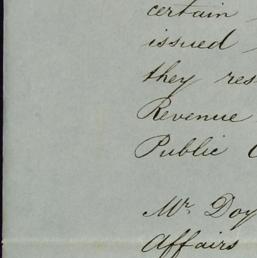 certain
issued
they res
Revenue
Public
Mr. Doy
Affairs